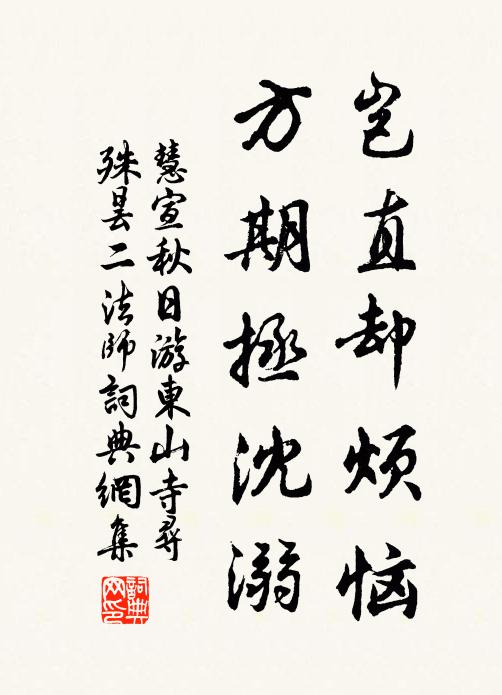 岂直却烦恼
方期拯沈溺
慧宣秋日游東山寺尋
殊昙二法师詞典網集
詞典网印